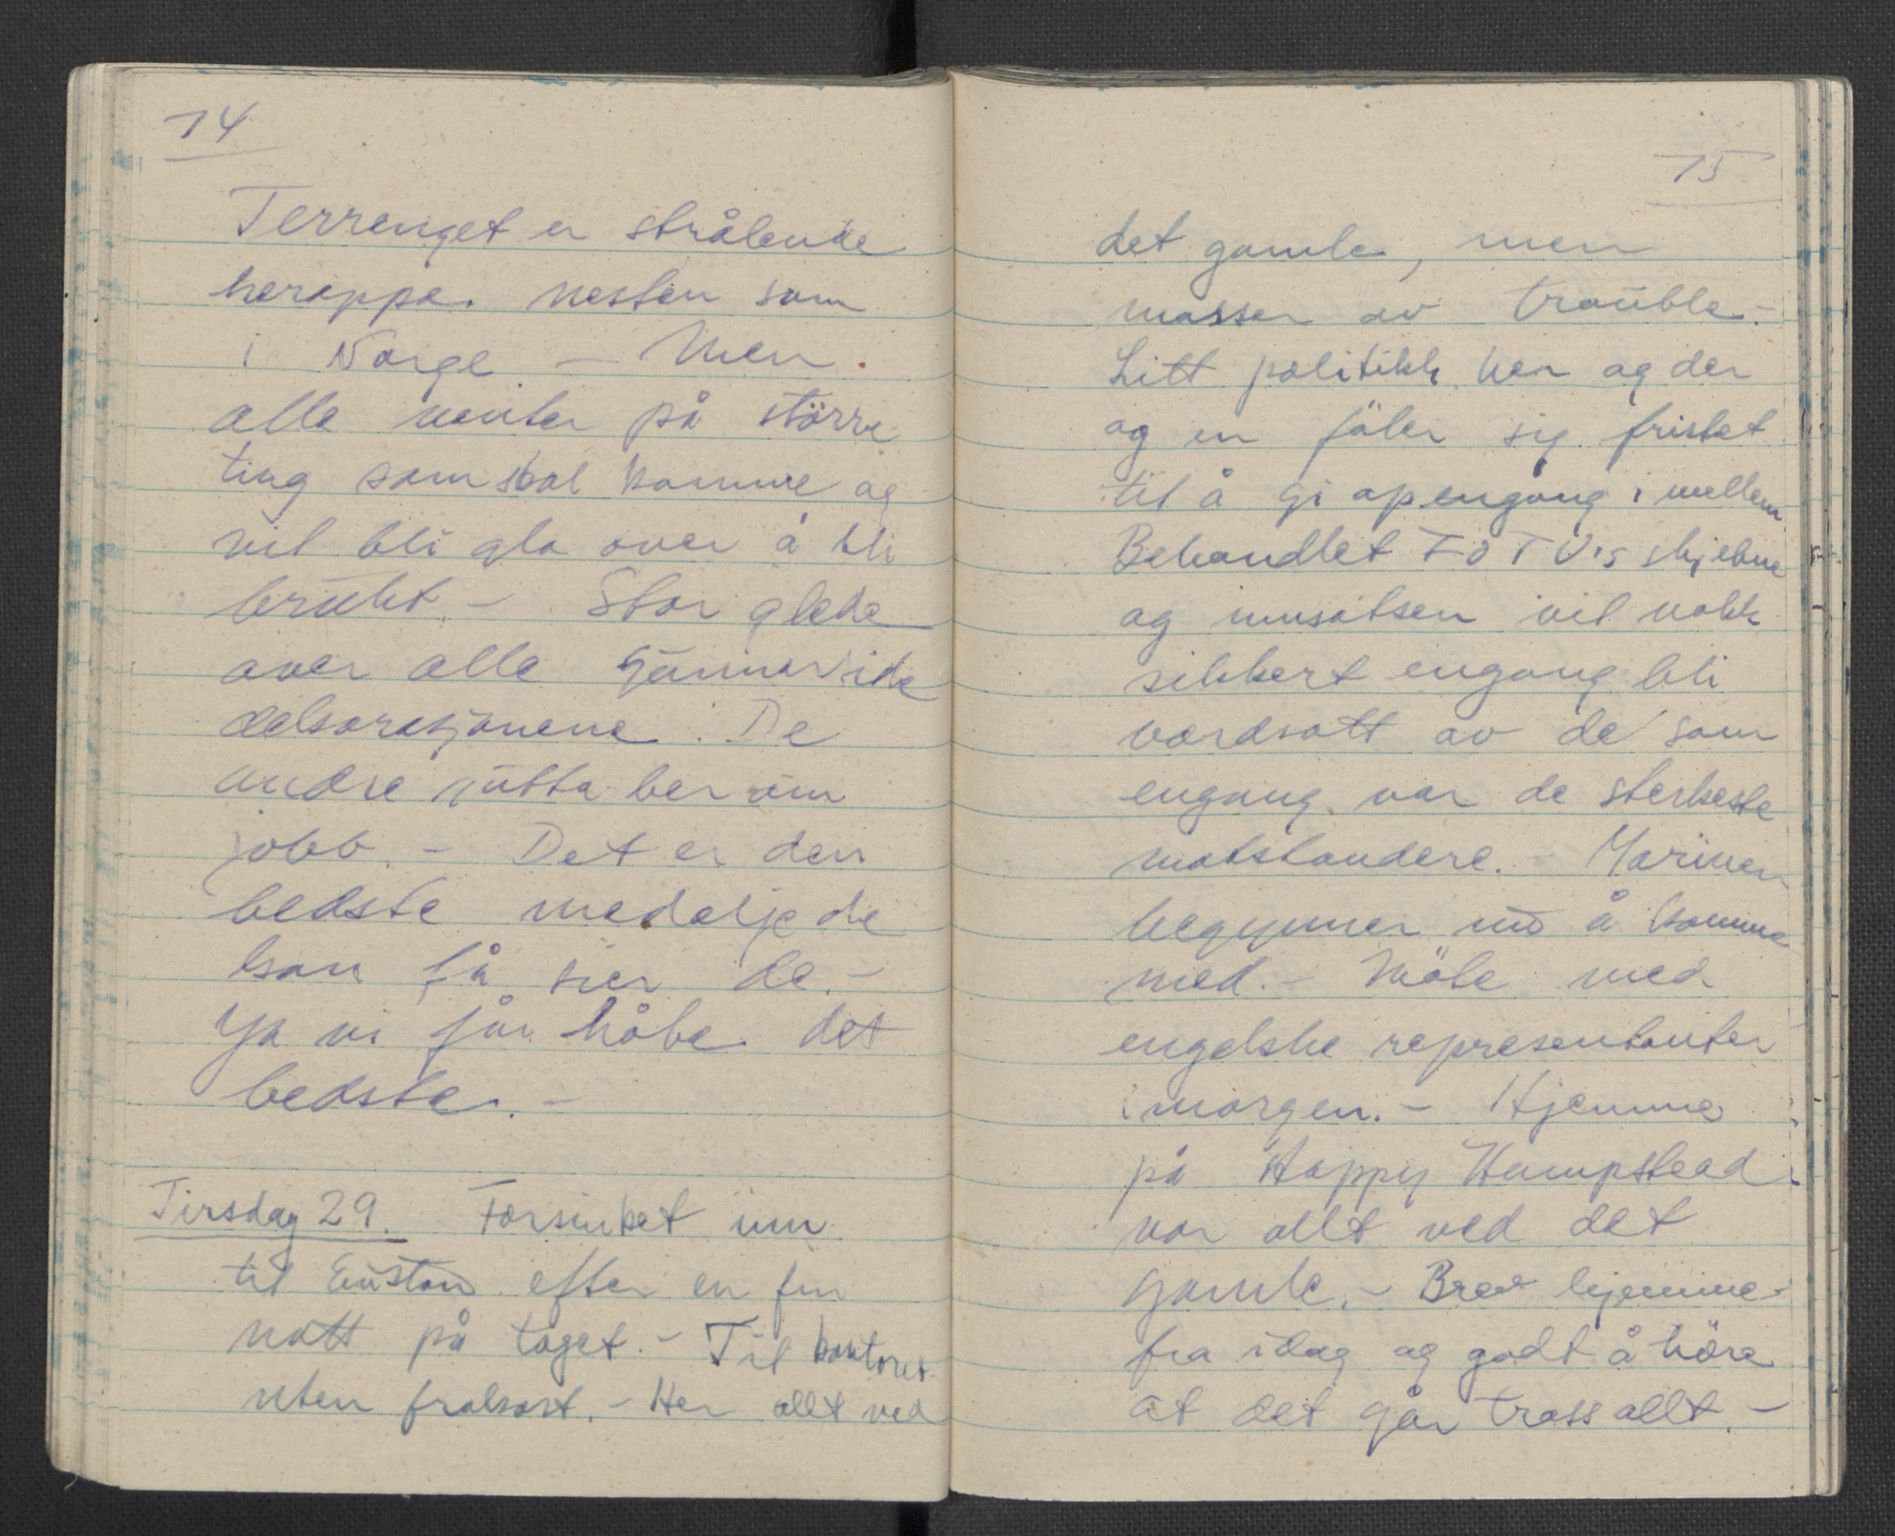 14
Terrenget er strålende
heroppe. nesten som
i Norge — Men
alle venter på större
ting som skal komme og
vil bli gla over å bli
brukt. — Stor glede
over alle Gunnerside
dekorasjonene. De
andre gutta ber om
jobb. — Det er den
bedste medalje de
kan få sier de. —
Ja vi får håbe det
bedste. —
Tirsdag 29. Forsinket inn
til Euston efter en fin
natt på toget. — Til kontoret
uten frokost. — Her allt ved
15
det gamle, men
masser av trouble. —
Litt politikk her og der
og en föler sig fristet
til å gi op engang i mellem
Behandlet FOTU's skjebne
og innsatsen vil nokk
sikkert engang bli
verdsatt av de som
engang var de sterkeste
motstandere. — Marinen
begynner nå å komme
med. — Möte med
engelske representanter
imorgen. — Hjemme
på Happy Hampstead
var allt ved det
gamle. — Brev hjemme-
fra idag og godt å höre
at det går tross allt. —